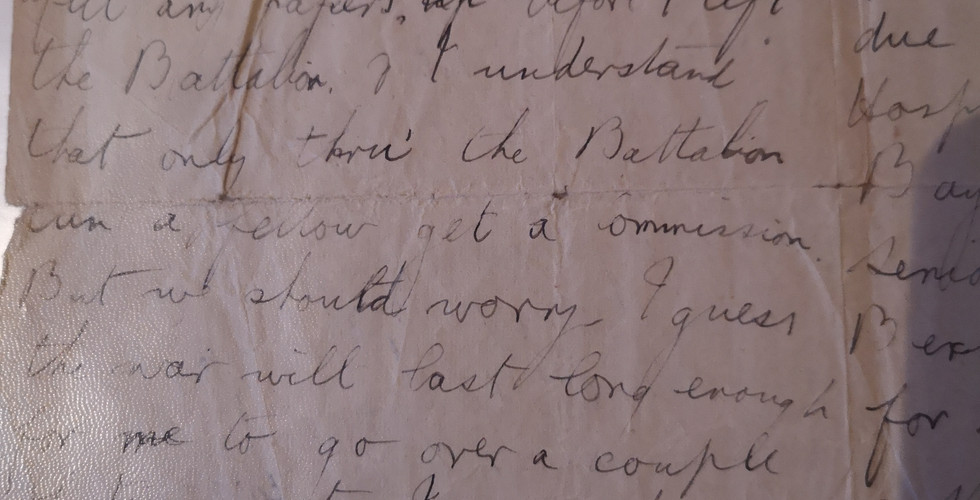 any papers, before I left
the Battalion. & I understand
that only thru' the Battalion
can a fellow get a commission.
But we should worry I guess
the war will last long enough
for me to go over a couple
due
Hosp
B
Seni
B
for